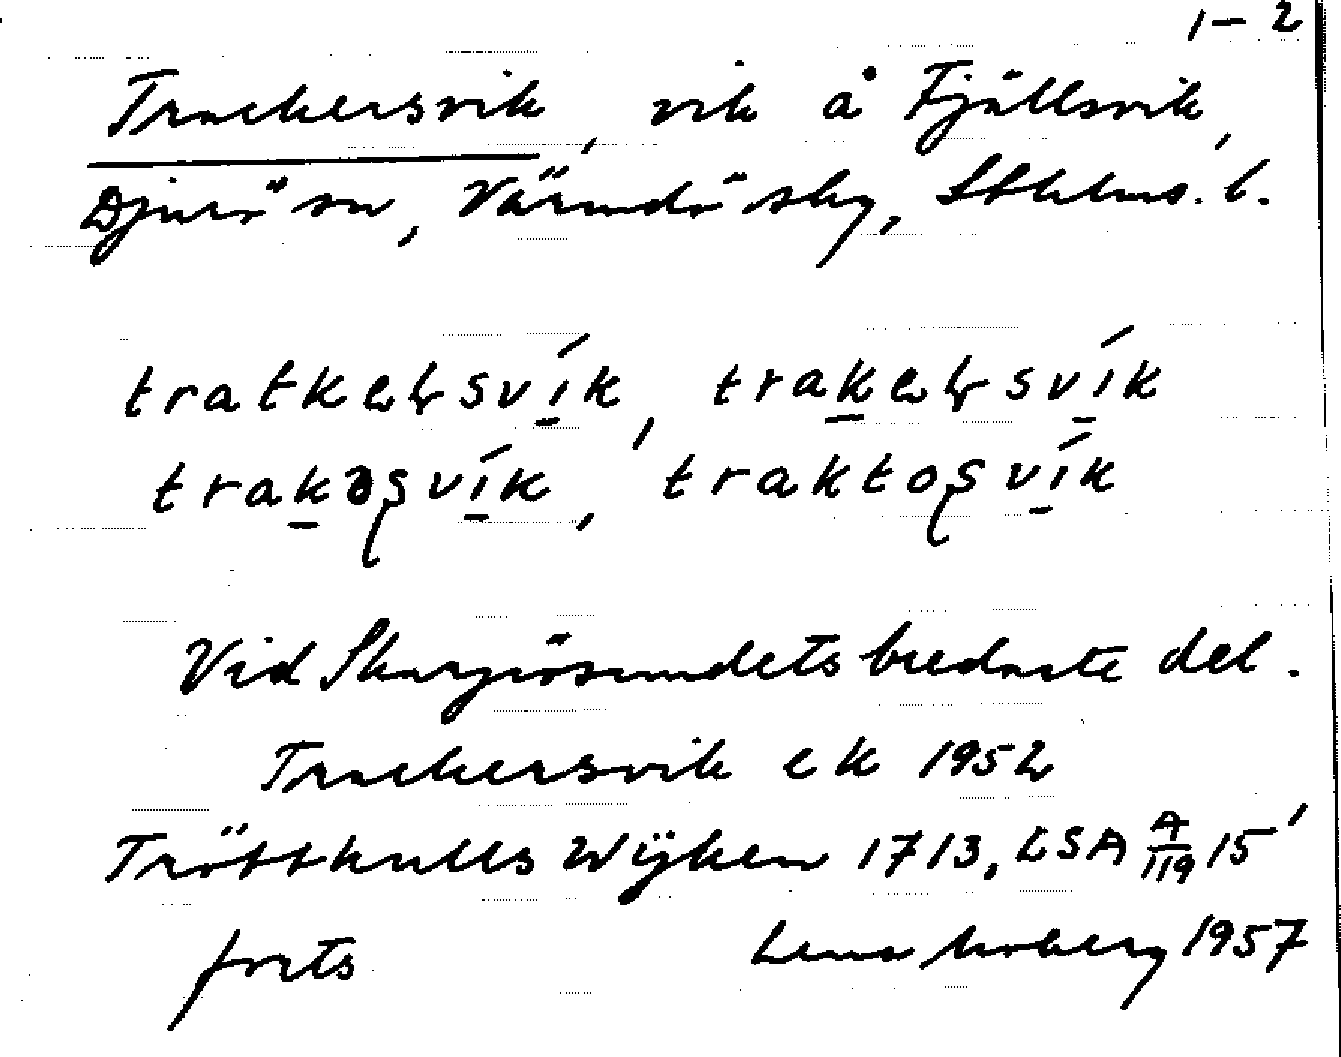 1–2
Trackersvik, vik å Fjällsvik,
Djurö sn, Värmdö skg, Stklms. l.
tratkeɭsvík, trakeɭsvík
trakəʂvík, traktoʂvík
Vid Skurusundets bredaste del.
Trackersvik ek 1952
Trötthulls Wÿken 1713, LSA A/119 15'
forts Lena Moberg 1957